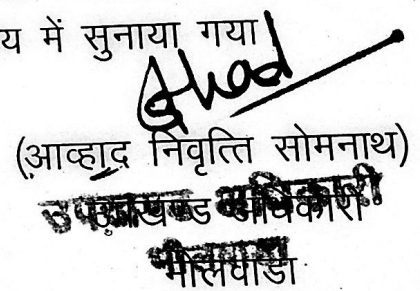 य में सुनाया गया
(आव्हाद निवृत्ति सोमनाथ)
उपखण्ड अधिकारी
भीलवाडा